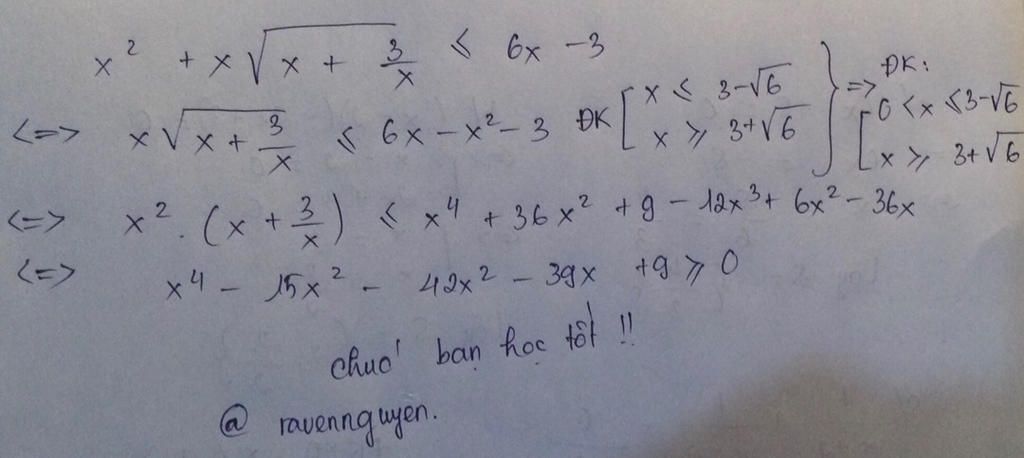 x² + x√(x + 3/x) ≤ 6x - 3
<=> x√(x + 3/x) ≤ 6x - x² - 3 ĐK [ x ≤ 3-√6 x ≥ 3+√6 } => ĐK: [ 0 < x ≤ 3-√6 x ≥ 3+√6
<=> x² . (x + 3/x) ≤ x⁴ + 36x² + 9 - 12x³ + 6x² - 36x
<=> x⁴ - 15x² - 42x² - 39x + 9 ≥ 0
chuć bạn học tốt !!
@ ravennguyen.